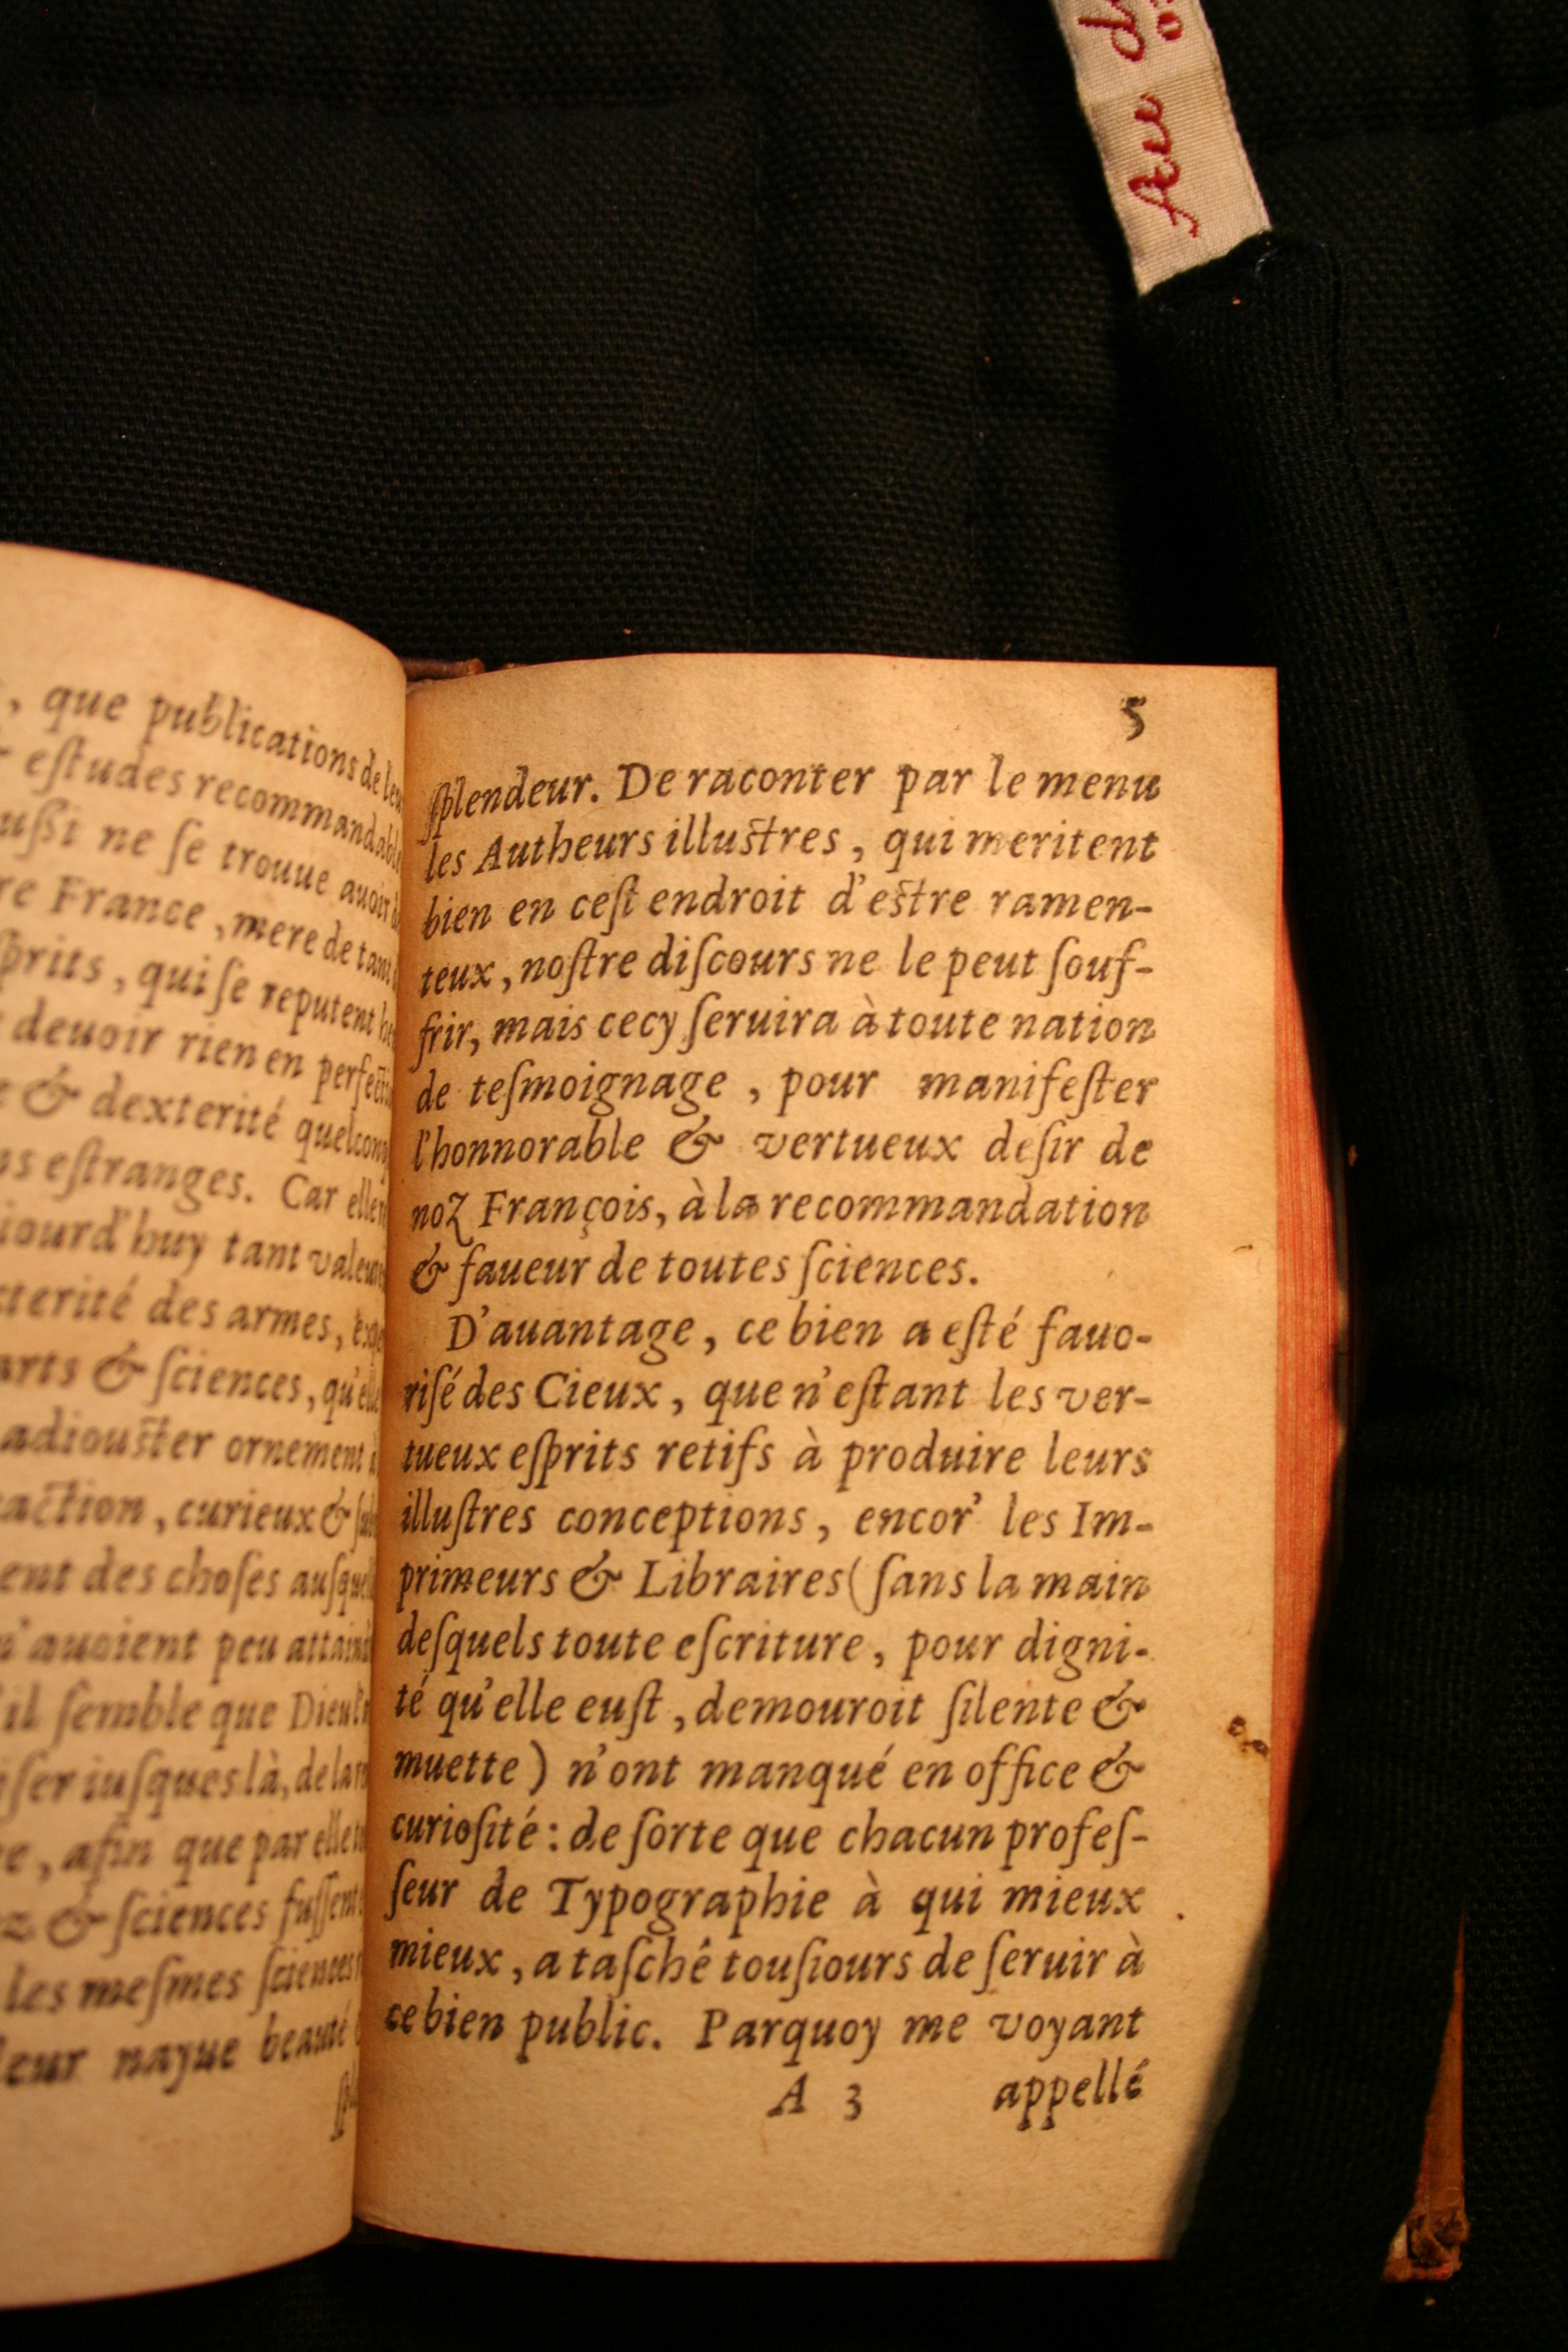 , que publications de leur
estudes recommandable
ne ſe trouue auoir
France, mere de tant
ſprits, qui ſe reputent
deuoir rien en
& dexterité
eſtranges. Car
iourd'huy tant
des armes,
arts & ſciences,
adiouſter ornement
curieux &
des choſes
auoient peu
il ſemble que
iuſques là,
, afin que par elle
& ſciences
les meſmes ſciences
leur nayue beauté
5
ſplendeur. De raconter par le menu
les Autheurs illuſtres, qui meritent
bien en ceſt endroit d'eſtre ramen-
teux, noſtre diſcours ne le peut ſouf-
frir, mais cecy ſeruira à toute nation
de teſmoignage, pour manifeſter
l'honnorable & vertueux deſir de
noz François, à la recommandation
& faueur de toutes ſciences.
D'auantage, ce bien a eſté fauo-
riſé des Cieux, que n'eſtant les ver-
tueux eſprits retifs à produire leurs
illuſtres conceptions, encor' les Im-
primeurs & Libraires (ſans la main
deſquels toute eſcriture, pour digni-
té qu'elle euſt, demouroit ſilente &
muette) n'ont manqué en office &
curioſité: de ſorte que chacun profeſ-
ſeur de Typographie à qui mieux
mieux, a taſché touſiours de ſeruir à
ce bien public. Parquoy me voyant
A 3 appellé